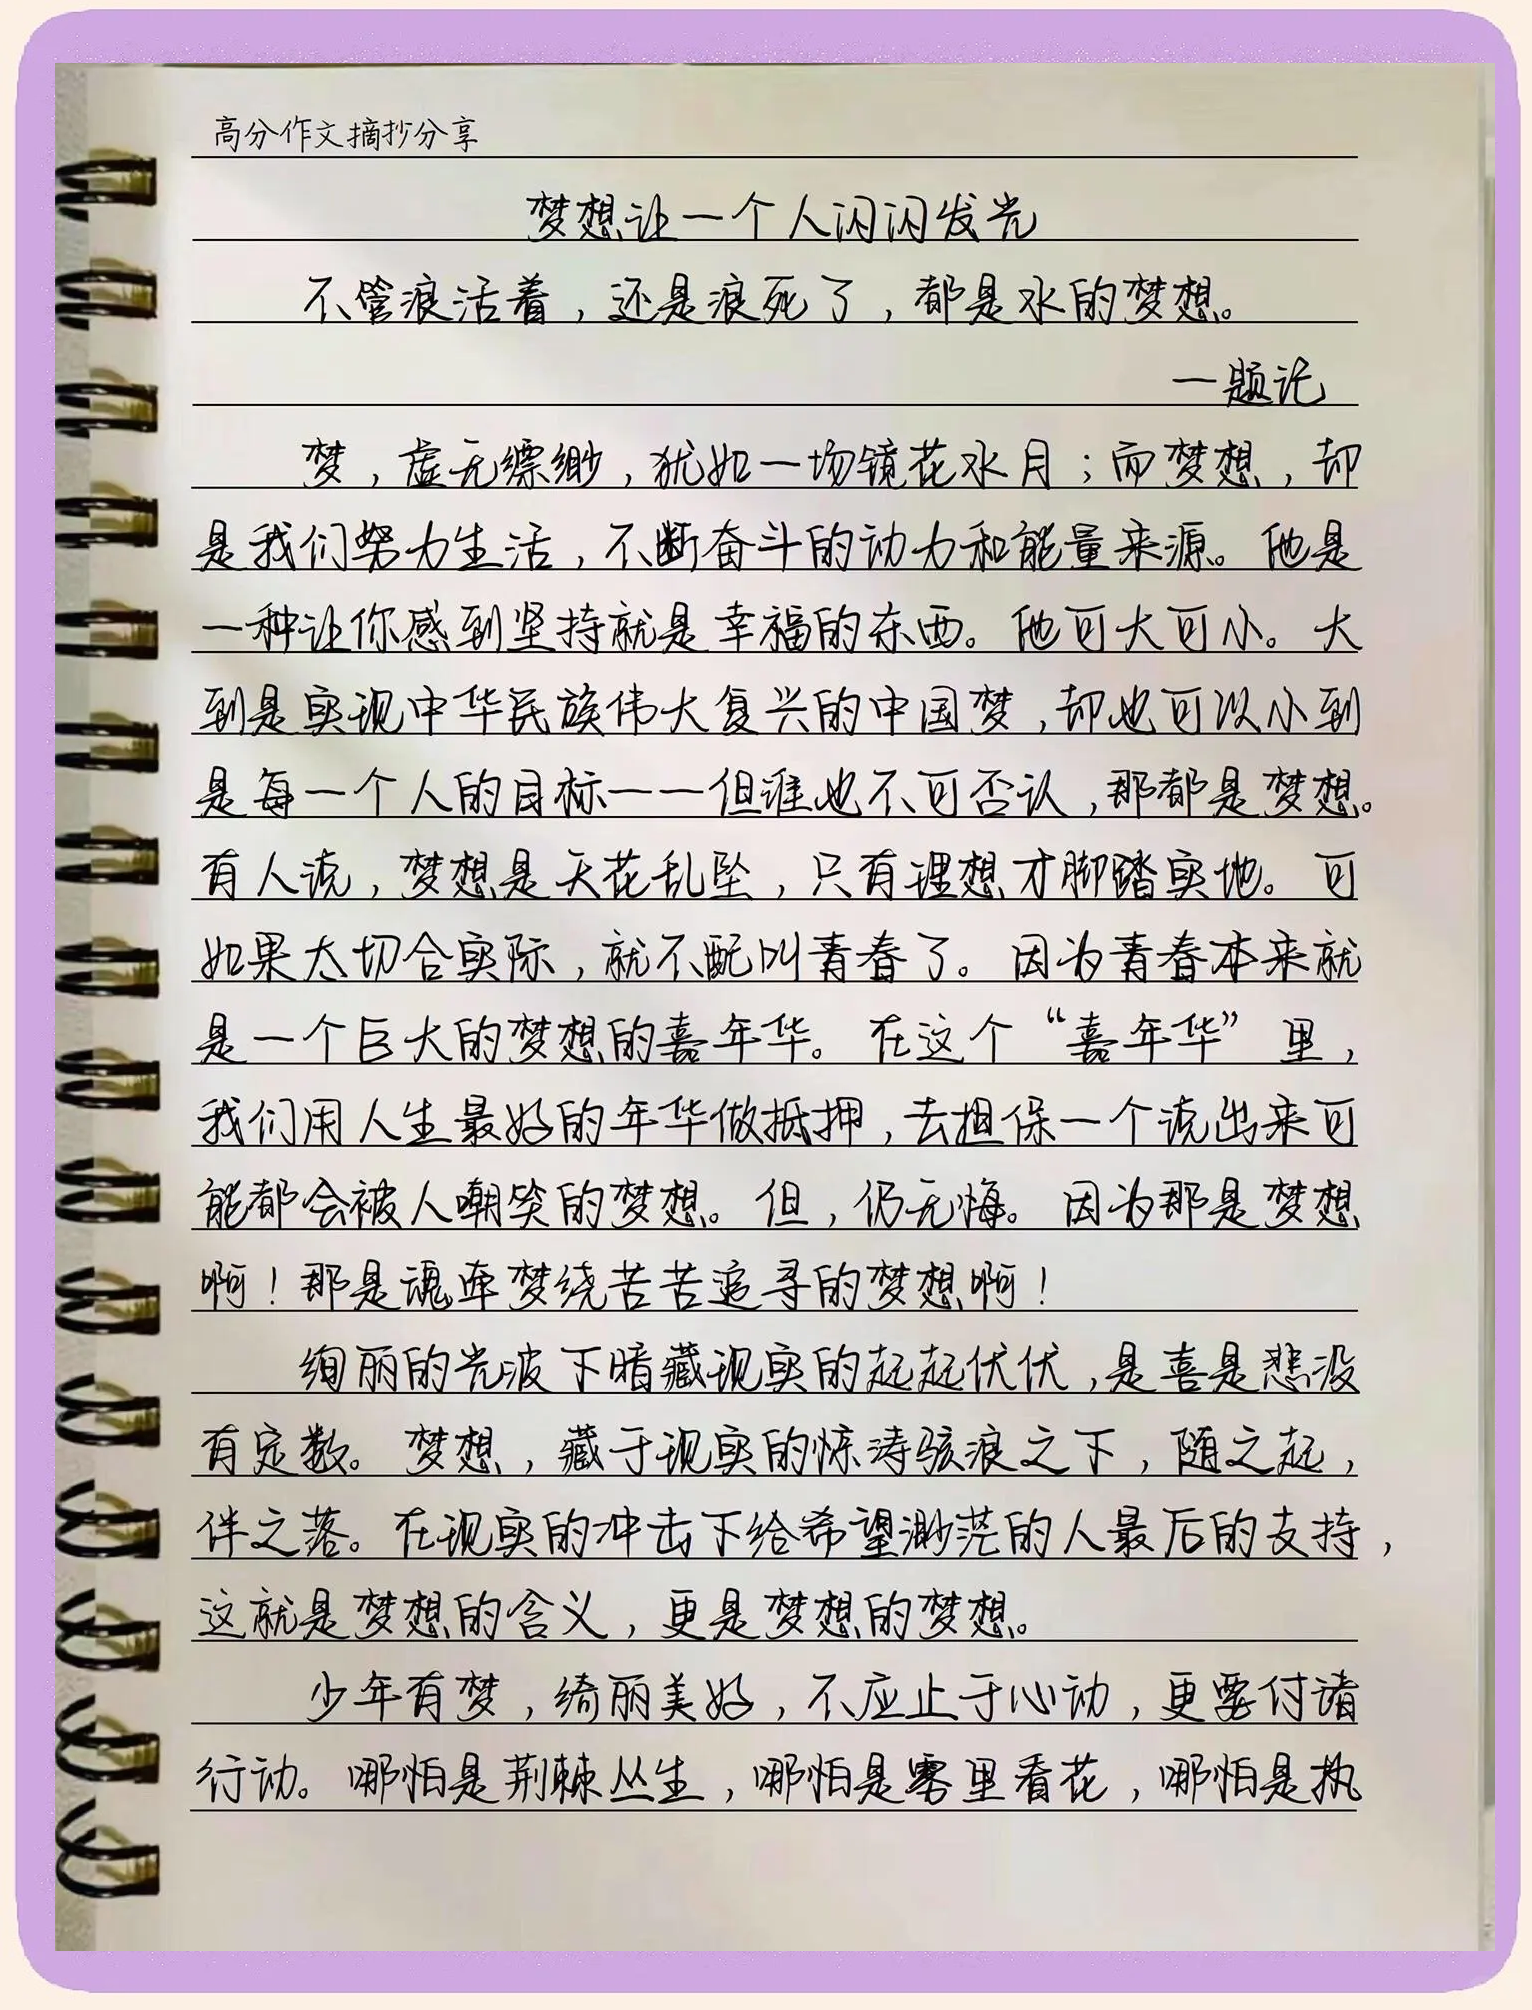 高分作文摘抄分享
梦想让一个人闪闪发光
不管浪活着，还是浪死了，都是水的梦想。
一题记
梦，虚无缥缈，犹如一场镜花水月；而梦想，却
是我们努力生活，不断奋斗的动力和能量来源。他是
一种让你感到坚持就是幸福的东西。他可大可小。大
到是实现中华民族伟大复兴的中国梦，却也可以小到
是每一个人的目标一一但谁也不可否认，那都是梦想。
有人说，梦想是天花乱坠，只有理想才脚踏实地。可
如果太切合实际，就不配叫青春了。因为青春本来就
是一个巨大的梦想的嘉年华。在这个“嘉年华”里，
我们用人生最好的年华做抵押，去担保一个说出来可
能都会被人嘲笑的梦想。但，仍无悔。因为那是梦想
啊！那是魂牵梦绕苦苦追寻的梦想啊！
绚丽的光波下暗藏现实的起起伏伏，是喜是悲没
有定数。梦想，藏于现实的惊涛骇浪之下，随之起，
伴之落。在现实的冲击下给希望渺茫的人最后的支持，
这就是梦想的含义，更是梦想的梦想。
少年有梦，绮丽美好，不应止于心动，更要付诸
行动。哪怕是荆棘丛生，哪怕是雾里看花，哪怕是执